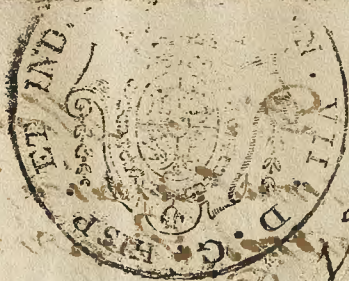 VII. D. G. HISP. ET IND.